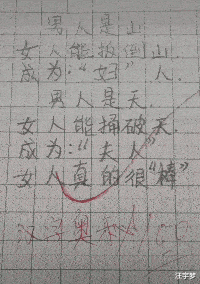 男人是山.
女人能扳倒山.
成为:“妇”人.
男人是天.
女人能捅破天.
成为:“夫人”
女人真的很“棒”
汉字奥秘